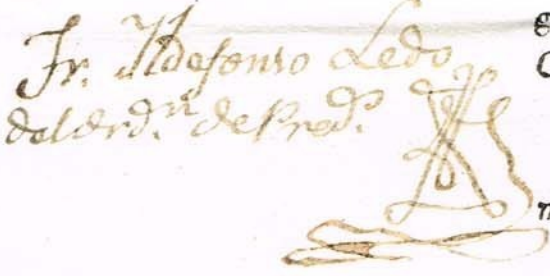 Fr. Ildefonso Ledo
del Ord.n de Pred.s